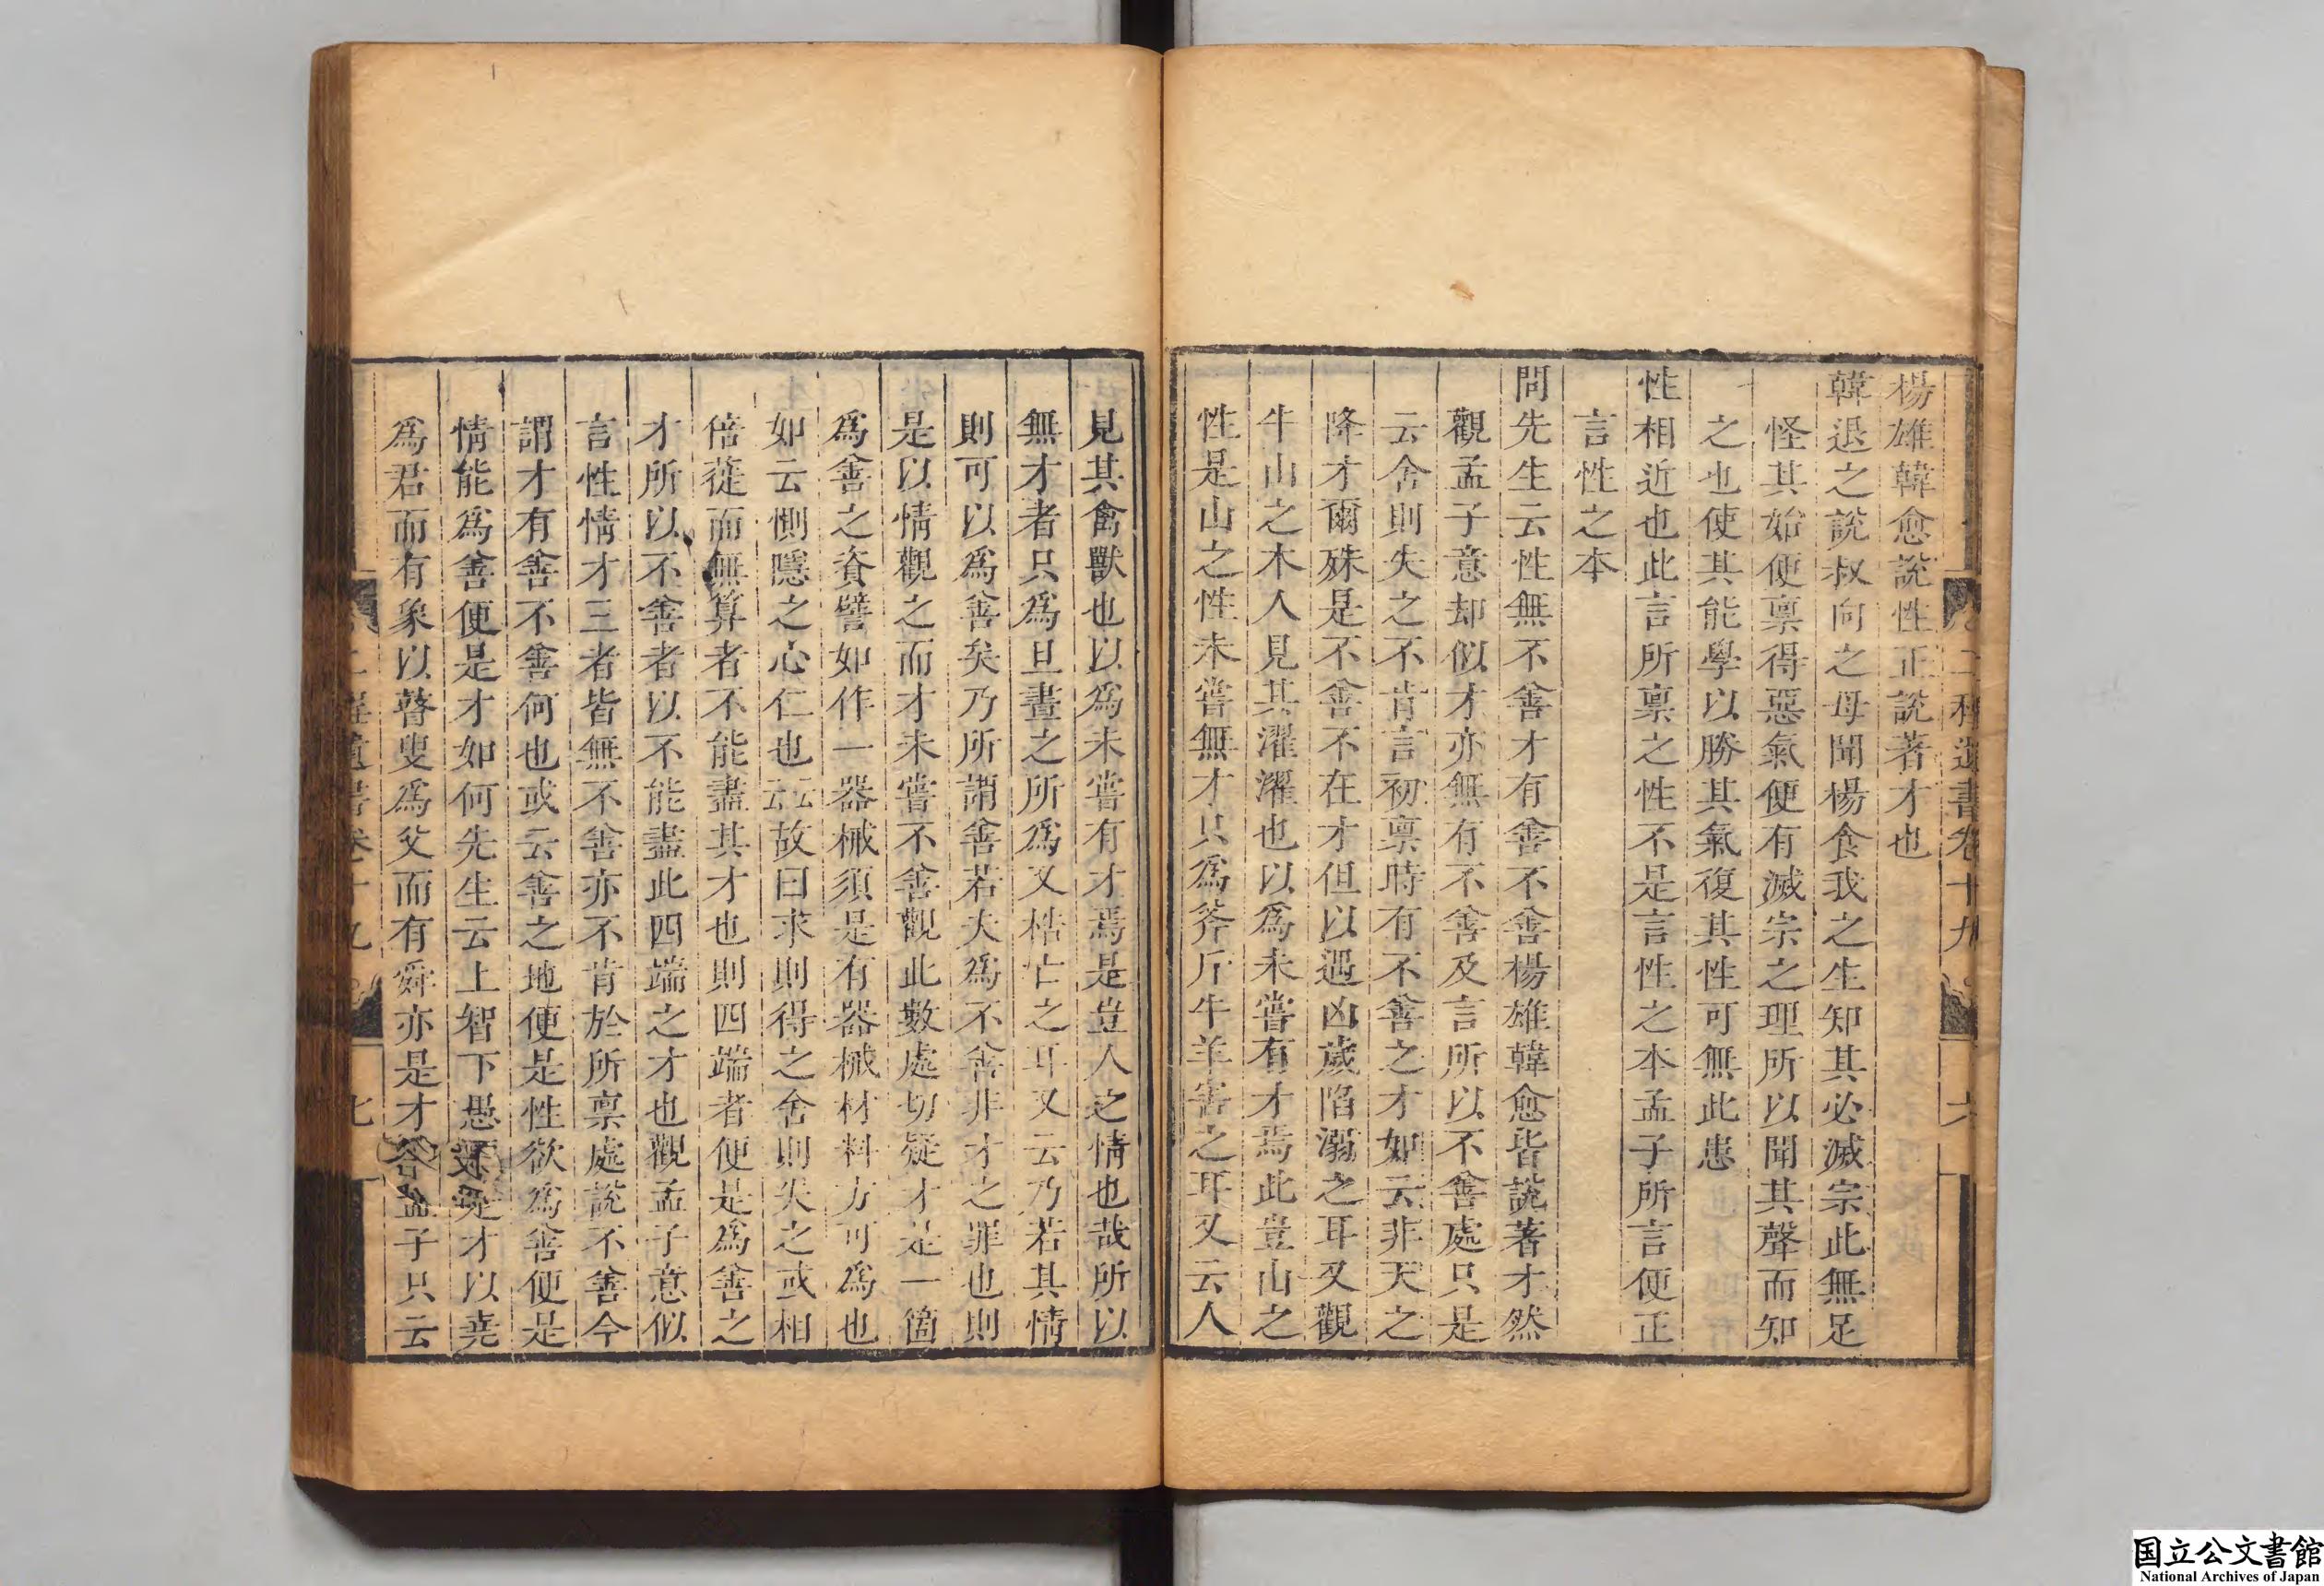 楊雄韓愈說性正說著才也
韓退之說叔向之母聞楊食我之生知其必滅宗此無足
怪其始便稟得惡氣便有滅宗之理所以聞其聲而知
之也使其能學以勝其氣復其性可無此患
性相近也此言所稟之性不是言性之本孟子所言便正
言性之本
問先生云性無不善才有善不善楊雄韓愈皆說著才然
觀孟子意却似才亦無有不善及言所以不善處只是
云舍則失之不肯言初稟時有不善之才如云非天之
降才爾殊是不善不在才但以遇凶歲陷溺之耳又觀
牛山之木人見其濯濯也以爲未嘗有才焉此豈山之
性是山之性未嘗無才只爲斧斤牛羊害之耳又云人
見其禽獸也以爲未嘗有才焉是豈人之情也哉所以
無才者只爲旦晝之所爲又梏亡之耳又云乃若其情
則可以爲善矣乃所謂善若夫爲不善非才之罪也則
是以情觀之而才未嘗不善觀此數處切疑才是一箇
爲善之資譬如作一器械須是有器械材料方可爲也
如云惻隱之心仁也云云故曰求則得之舍則失之或相
倍蓰而無算者不能盡其才也則四端者便是爲善之
才所以不善者以不能盡此四端之才也觀孟子意似
言性情才三者皆無不善亦不肯於所稟處說不善今
謂才有善不善何也或云善之地便是性欲爲善便是
情能爲善便是才如何先生云上智下愚便是才以堯
爲君而有象以瞽叟爲父而有舜亦是才答孟子只云
二程遺書卷十九
六
二程遺書卷十九
七
国立公文書館
National Archives of Japan